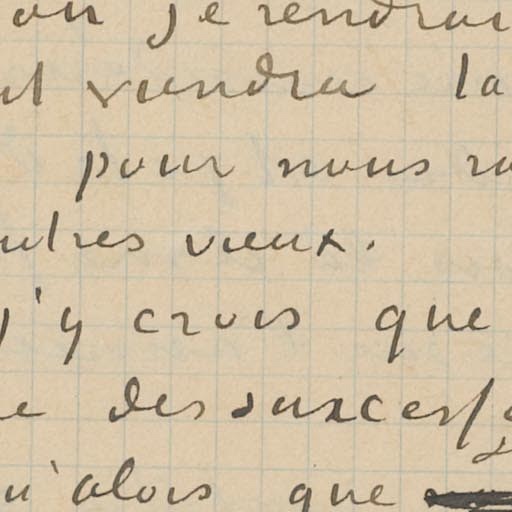 on je rendrai
viendra la
pour nous
utres vieux.
j'y crois que
des succes
qu'alors que